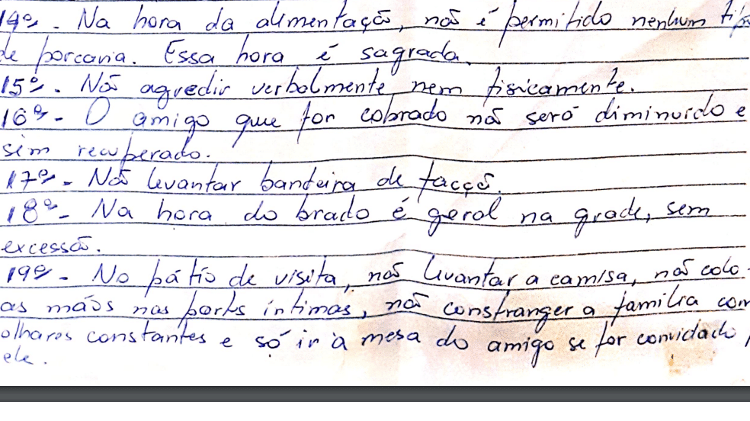 14º. Na hora da alimentação, não é permitido nenhum tipo
de porcaria. Essa hora é sagrada.
15º. Não agredir verbalmente nem fisicamente.
16º - O amigo que for cobrado não será diminuído e
sim recuperado.
17º - Não levantar bandeira de facção.
18º - Na hora do brado é geral na grade, sem
excessão.
19º - No pátio de visita, não levantar a camisa, não colo-
as mãos nas parts íntimas, não constranger a família com
olhares constantes e só ir à mesa do amigo se for convidado,
ele.